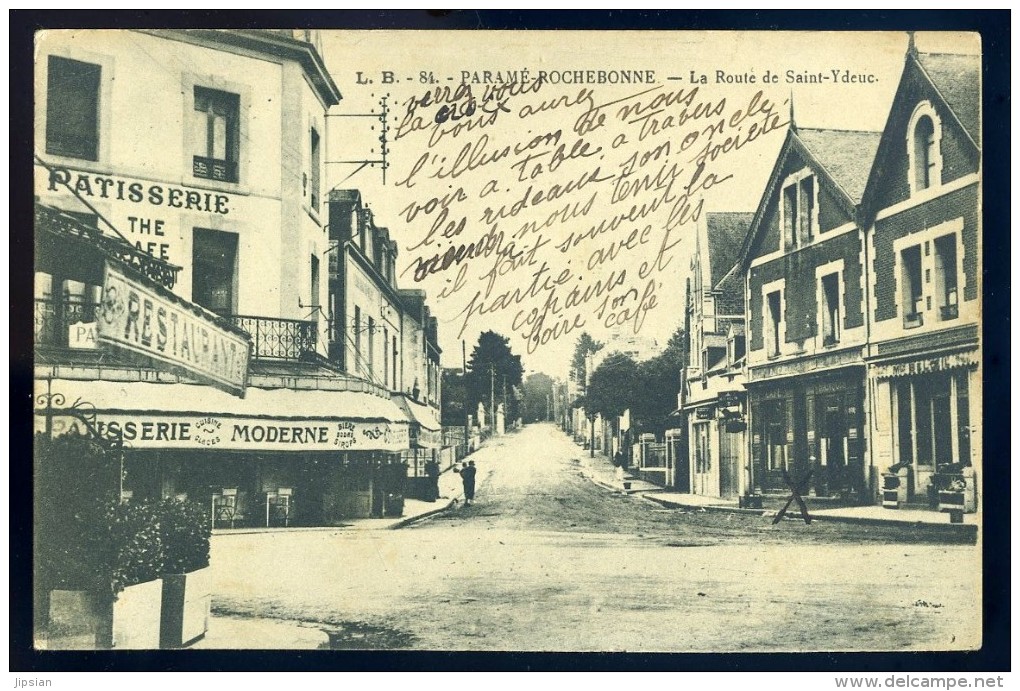 L. B. - 84. - PARAMÉ-ROCHEBONNE - La Route de Saint-Ydeuc.
verrez vous
la croix
vous aurez
l'illusion de nous
voir a table, a travers
les rideaux, son oncle
viendra nous tenir société
il fait souvent la
partie avec les
copains et
boire son
café
PATISSERIE
THE
CAFE
RESTAURANT
PATISSERIE
CUISINE
GLACES
MODERNE
BIERE
SIROPS
jipsian
www.delcampe.net